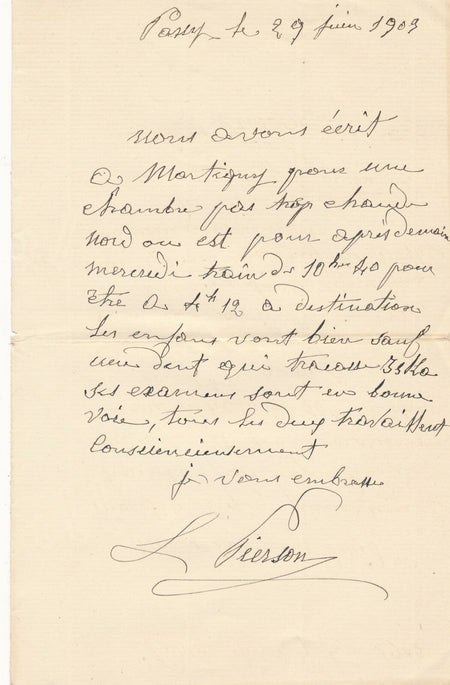 Passy le 29 juin 1903
nous avons écrit
a Martigny pour une
chambre pas trop chaude
nord ou est pour après demain
mercredi train de 10h 40 pour
être a 4h 12 a destination
les enfans vont bien sauf
une dent qui tracasse
ses examens sont en bonne
voie, tous les deux travaillent
Consciencieusement
je vous embrasse
L Pierson